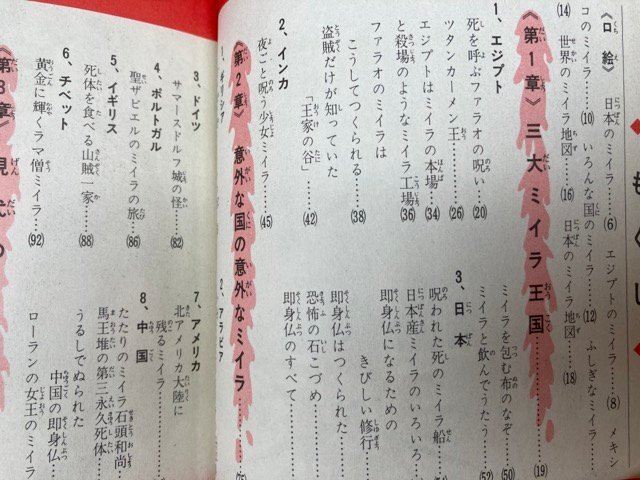 もくじ
《口絵》 日本のミイラ……(6) エジプトのミイラ……(8) メキシ
コのミイラ……(10) いろんな国のミイラ……(12) ふしぎなミイラ……
(14) 世界のミイラ地図……(16) 日本のミイラ地図……(18)
《第1章》 三大ミイラ王国……(19)
1、エジプト
死を呼ぶファラオの呪い……(20)
ツタンカーメン王……(26)
エジプトはミイラの本場……(34)
と殺場のようなミイラ工場……(36)
ファラオのミイラは
こうしてつくられる……(38)
盗賊だけが知っていた
「王家の谷」……(42)
2、インカ
夜ごと呪う少女ミイラ……(45)
ミイラを包む布のなぞ……(50)
ミイラと飲んでうたう……(52)
3、日本
呪われた死のミイラ船
日本産ミイラのいろいろ
即身仏になるための
きびしい修行
即身仏はつくられた
恐怖の石こづめ
即身仏のすべて
《第2章》 意外な国の意外なミイラ……(75)
2、アラビア
3、ドイツ
サマースドルフ城の怪……(82)
4、ポルトガル
聖ザビエルのミイラの旅……(86)
5、イギリス
死体を食べる山賊一家……(88)
6、チベット
黄金に輝くラマ僧ミイラ……(92)
7、アメリカ
北アメリカ大陸に
残るミイラ
8、中国
たたりのミイラ石頭和尚
馬王堆の第三永久死体
うるしでぬられた
中国の即身仏
ローランの女王のミイラ
《第3章》